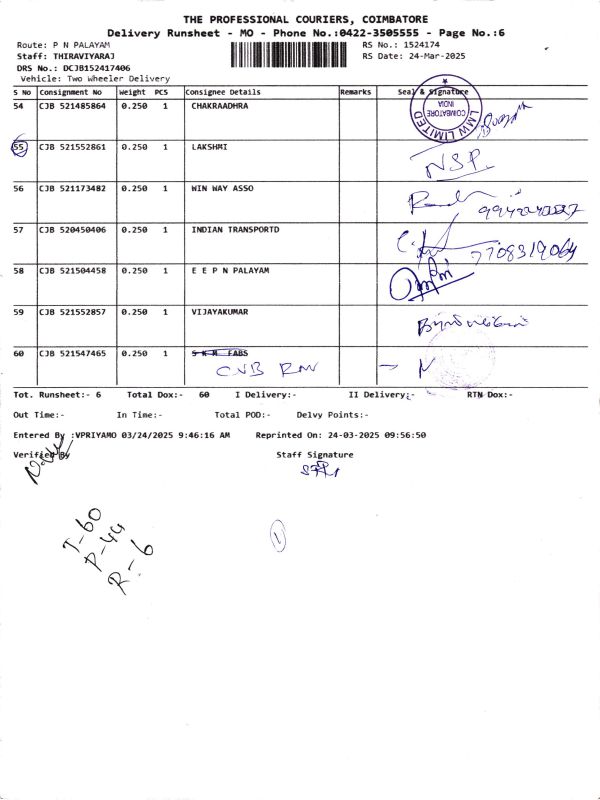 THE PROFESSIONAL COURIERS, COIMBATORE
Delivery Runsheet - MO - Phone No.:0422-3505555 - Page No.:6
Route: P N PALAYAM RS No.: 1524174
Staff: THIRAVIYARAJ RS Date: 24-Mar-2025
DRS No.: DCJB152417406
Vehicle: Two Wheeler Delivery
S No Consignment No Weight PCS Consignee Details Remarks Seal & Signature
54 CJB 521485864 0.250 1 CHAKRAADHRA
LMW LIMITED COIMBATORE INDIA
55 CJB 521552861 0.250 1 LAKSHMI NSP.
56 CJB 521173482 0.250 1 WIN WAY ASSO
57 CJB 520450406 0.250 1 INDIAN TRANSPORTD 7708319064
58 CJB 521504458 0.250 1 E E P N PALAYAM
59 CJB 521552857 0.250 1 VIJAYAKUMAR
60 CJB 521547465 0.250 1 S K M FABS
Tot. Runsheet:- 6 Total Dox:- 60 I Delivery:- II Delivery:- RTN Dox:-
Out Time:- In Time:- Total POD:- Delvy Points:-
Entered By :VPRIYAMO 03/24/2025 9:46:16 AM Reprinted On: 24-03-2025 09:56:50
Verified By Staff Signature
T-60
P-44
R-6
1